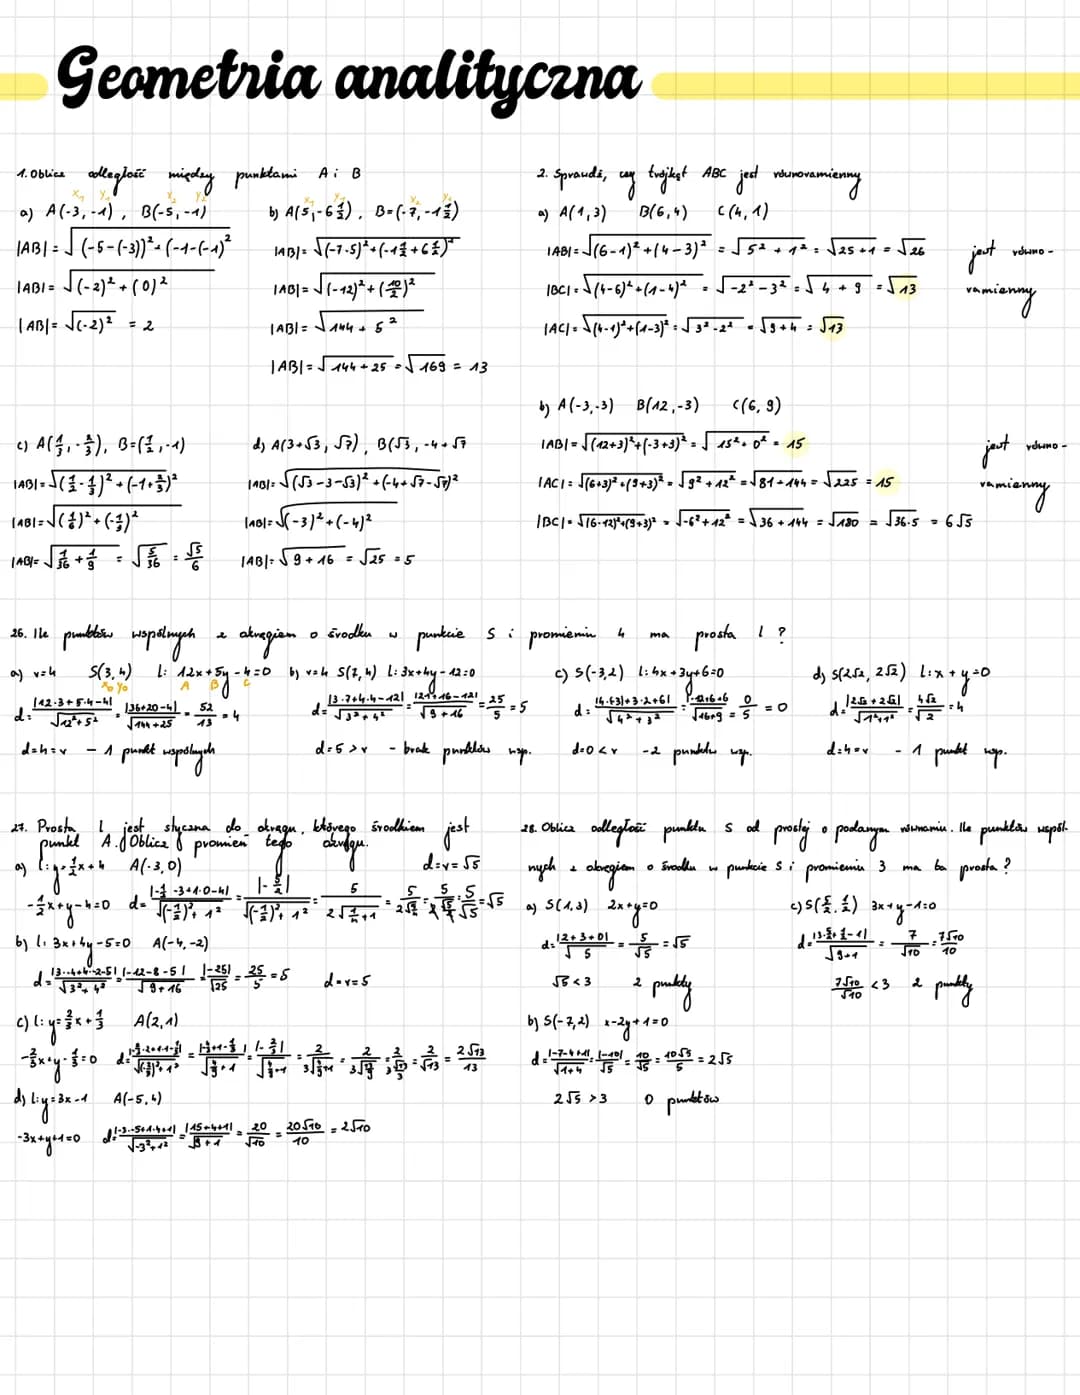 Geometria analityczna
1. Oblicz odległość między punktami A i B
x₁ y₁ x₂ y₂
a) A(-3, -1), B(-5, -1)
|AB| = √((-5-(-3))² + (-1-(-1)²
|AB| = √((-2)² + (0)²
|AB| = √(-2)² = 2
x₁ y₁ x₂ y₂
b) A(5, -6 1/2), B=(-7, -1 1/2)
|AB| = √((-7-5)² + (-1 1/2 + 6 1/2)²
|AB| = √((-12)² + (10/2)²
|AB| = √(144 + 5²
|AB| = √(144+25) = √169 = 13
c) A(1/3, -2/3), B=(1/2, -1)
|AB| = √((1/2 - 1/3)² + (-1+2/3)²
|AB| = √((1/6)² + (-1/3)²
|AB| = √(1/36 + 1/9) = √(5/36) = √5/6
d) A(3+√3, √7), B(√3, -4+√7
|AB| = √((√3-3-√3)² + (-4+√7-√7)²
|AB| = √((-3)² + (-4)²
|AB| = √(9+16) = √25 = 5
2. Sprawdź, czy trójkąt ABC jest równoramienny
a) A(1,3) B(6,4) C(4,1)
|AB| = √((6-1)² + (4-3)²) = √(5² + 1²) = √(25+1) = √26
|BC| = √((4-6)² + (1-4)²) = √(-2² -3²) = √(4+9) = √13
|AC| = √((4-1)² + (1-3)²) = √(3² -2²) = √(9+4) = √13
jest równo-
ramienny
b) A(-3,-3) B(12,-3) C(6,9)
|AB| = √((12+3)² + (-3+3)²) = √(15² + 0²) = 15
|AC| = √((6+3)² + (9+3)²) = √(9² + 12²) = √(81+144) = √225 = 15
|BC| = √((6-12)² + (9+3)²) = √(-6² + 12²) = √(36+144) = √180 = √36·5 = 6√5
jest równo-
ramienny
26. Ile punktów wspólnych z okręgiem o środku w punkcie S i promieniu 4 ma prosta l ?
a) r=4 S(3,4) l: 12x+5y-4=0
x₀ y₀ A B C
d = |12·3+5·4-4|/√(12²+5²) = |36+20-4|/√(144+25) = 52/13 = 4
d=4=r - 1 punkt wspólnych
b) r=4 S(7,4) l: 3x+4y-12=0
d = |3·7+4·4-12|/√(3²+4²) = |21+16-12|/√(9+16) = 25/5 = 5
d=5 >r - brak punktów wsp.
c) S(-3,2) l: 4x+3y+6=0
d = |4·(-3)+3·2+6|/√(4²+3²) = |-12+6+6|/√(16+9) = 0/5 = 0
d=0 < r - 2 punktu wsp.
d) S(2√2, 2√2) l: x+y=0
d = |2√2+2√2|/√(1²+1²) = 4√2/√2 = 4
d=4=r - 1 punkt wsp.
27. Prosta l jest styczna do okręgu, którego środkiem jest
punkt A. Oblicz promień tego okręgu.
a) l: y=1/2x+4 A(-3,0) d=r=√5
-1/2x+y-4=0 d = |-1/2·-3+1·0-4|/√((-1/2)²+1²) = |-5/2|/√((-1/2)²+1²) = 5/(2√(1/4+1)) = 5/(2√(5/4)) = 5/(2√5/2) = 5/√5 = √5
b) l: 3x+4y-5=0 A(-4,-2)
d = |3·-4+4·-2-5|/√(3²+4²) = |-12-8-5|/√(9+16) = |-25|/√25 = 25/5 = 5 d=r=5
c) l: y=2/3x+1/3 A(2,1)
-2/3x+y-1/3=0 d = |-2/3·2+1·1-1/3|/√((-2/3)²+1²) = |-4/3+1-1/3|/√(4/9+1) = |-2/3|/√(4/9+1) = 2/(3√(4/9+1)) = 2/(3√(13/9)) = 2/(3√13/3) = 2/√13 = 2√13/13
d) l: y=3x-1 A(-5,4)
-3x+y+1=0 d = |-3·-5+1·4+1|/√(-3²+1²) = |15+4+1|/√(9+1) = 20/√10 = 20√10/10 = 2√10
28. Oblicz odległość punktu S od prostej o podanym równaniu. Ile punktów wspól-
nych z okręgiem o środku w punkcie S i promieniu 3 ma ta prosta ?
a) S(1,3) 2x+y=0
d = |2+3+0|/√5 = 5/√5 = √5
√5 < 3 2 punkty
b) S(-7,2) x-2y+1=0
d = |-7-4+1|/√(1+4) = |-10|/√5 = 10/√5 = 10√5/5 = 2√5
2√5 > 3 0 punktów
c) S(5/2, 1/2) 3x+y-1=0
d = |3·5/2+1/2-1|/√(9+1) = 7/√10 = 7√10/10
7√10/√10 < 3 2 punkty